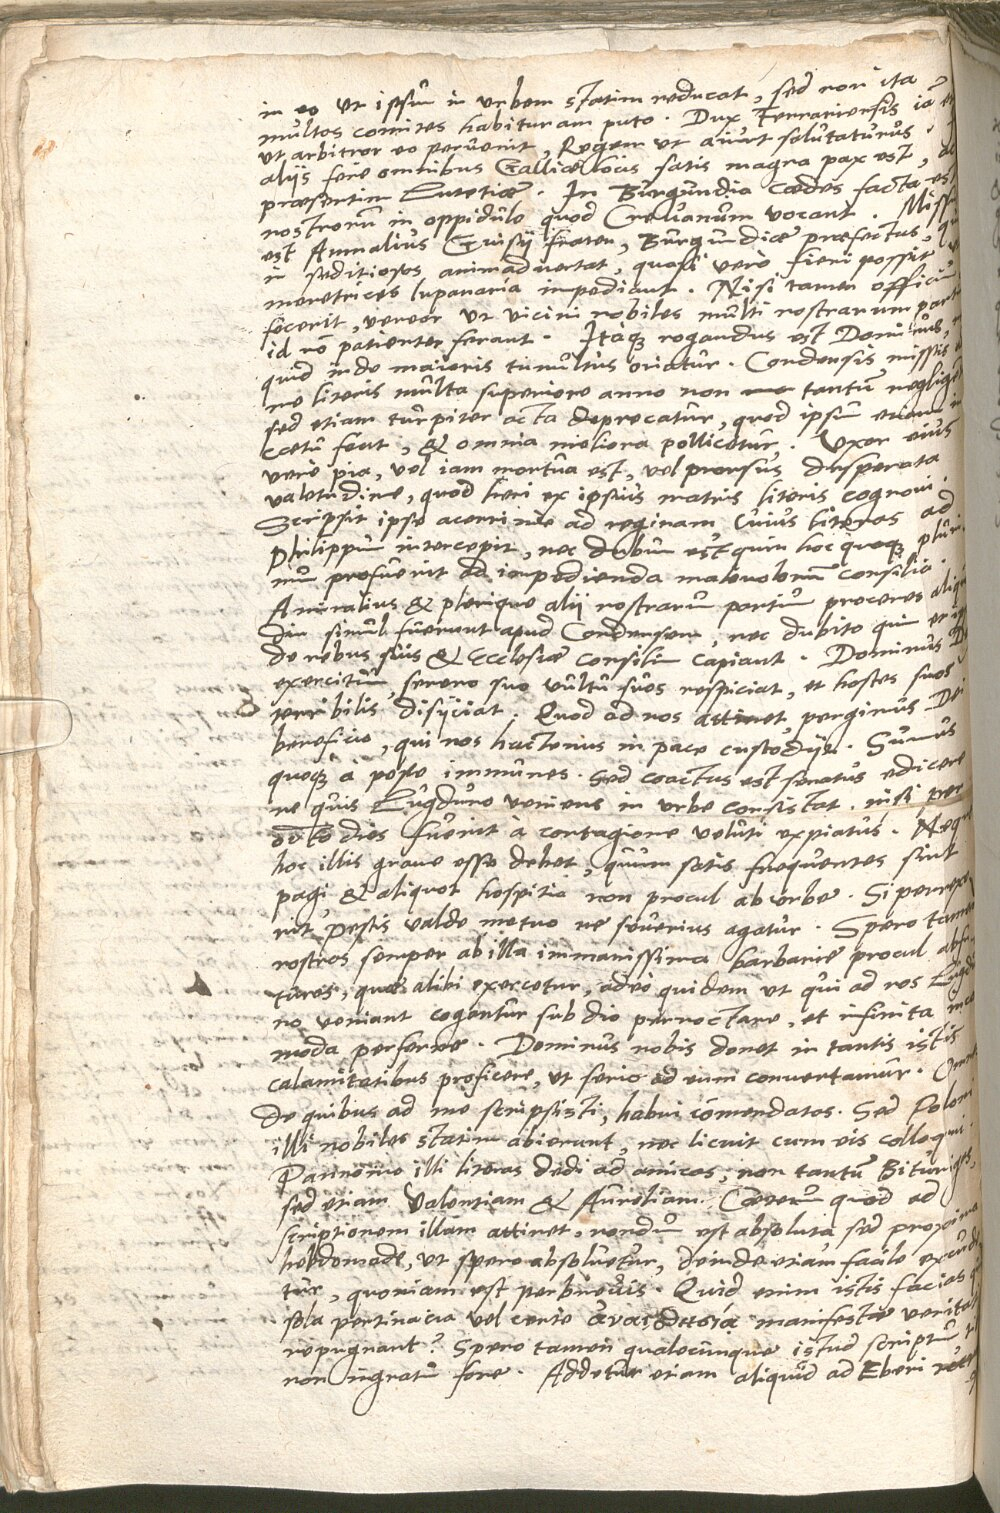 in eo ut ipsum in urbem statim reducat, sed non ita
multos comites habituram puto. Dux Ferrariensis iã
ut arbitror eo pervenit, Regem ut aiunt salutaturus.
aliis fere omnibus Galliæ locis satis magna pax est,
præsertim Lutetiæ. In Burgundia cædes facta est
nostrorũ in oppidulo quod Crevanum vocant. Missus
est Aumalius Guisij frater, Burgundiæ præfectus, qui
in seditiosos animadvertat, quasi vero fieri possit
meretrices lupanaria impediant. Nisi tamen officium
fecerit, vereor ut vicini nobiles multi nostrarum partiũ
id nõ patienter ferant. Itaq; rogandus est Dominus,
quid inde maioris tumultus oriatur. Condensis missis
me literis multa superiore anno non tantũ negligẽ
sed etiam turpiter acta deprecatur, quod ipsum etiam
cœtu fecit, & omnia meliora pollicetur. Uxor eius
vere pia, vel iam mortua est, vel prorsus desperata
valetudine, quod heri ex ipsius matris literis cognovi.
Scripsit ipse acerrime ad reginam cuius literas ad
Philippum intercepit, nec dubiũ est quin hoc quoq; pluri
mũ profuerit ad impedienda malevolorũ consilia.
Aumalius & plerique alii nostrarũ partiũ proceres aliqũ
diu simul fuerunt apud Condensem, nec dubito quin et
de rebus suis & Ecclesiæ consiliũ capiant. Dominus
exercituũ sereno suo vultu suos respiciat, et hostes suos
terribilis disijciat. Quod ad nos attinet, pergimus Dei
beneficio, qui nos hactenus in pace custodijt. Sumus
quoq; à peste immunes. Sed coactus est senatus edicere
ne quis Lugduno veniens in urbe consistat, nisi per
octo dies fuerit à contagione veluti expiatus. Neque
hoc illis grave esse debet, quum satis frequentes sint
pagi & aliquot hospitia non procul ab urbe. Si perrexe
rit pestis valde metuo ne severius agatur. Spero tamen
nostros semper ab illa immanissima barbarie procul abfu
turos, quæ alibi exercetur, adeò quidem ut qui ad nos Lugdu
no veniant cogantur sub dio pernoctare, et infinita incom
moda perferre. Dominus nobis donet in tantis istis
calamitatibus proficere, ut serio ad eum convertamur.
De quibus ad me scripsisti, habui cõmendatos. Sed Poloni
illi nobiles statim abierunt, nec licuit cum eis colloqui.
Pannonio illi literas dedi ad amicos, non tantũ Bituriges,
sed etiam Valentiam & Aureliam. Cæterũ quod ad
scriptionem illam attinet, nondũ est absoluta sed proxima
hebdomade, ut spero absolvetur, deinde etiam facile excude
tur, quoniam est perbrevis. Quid enim istis facias
sola pertinacia vel certe ἀναισθησία manifestæ veritati
repugnant? Spero tamen qualecunque istud scriptũ
non ingratũ fore. Addetur etiam aliquid ad Eberi